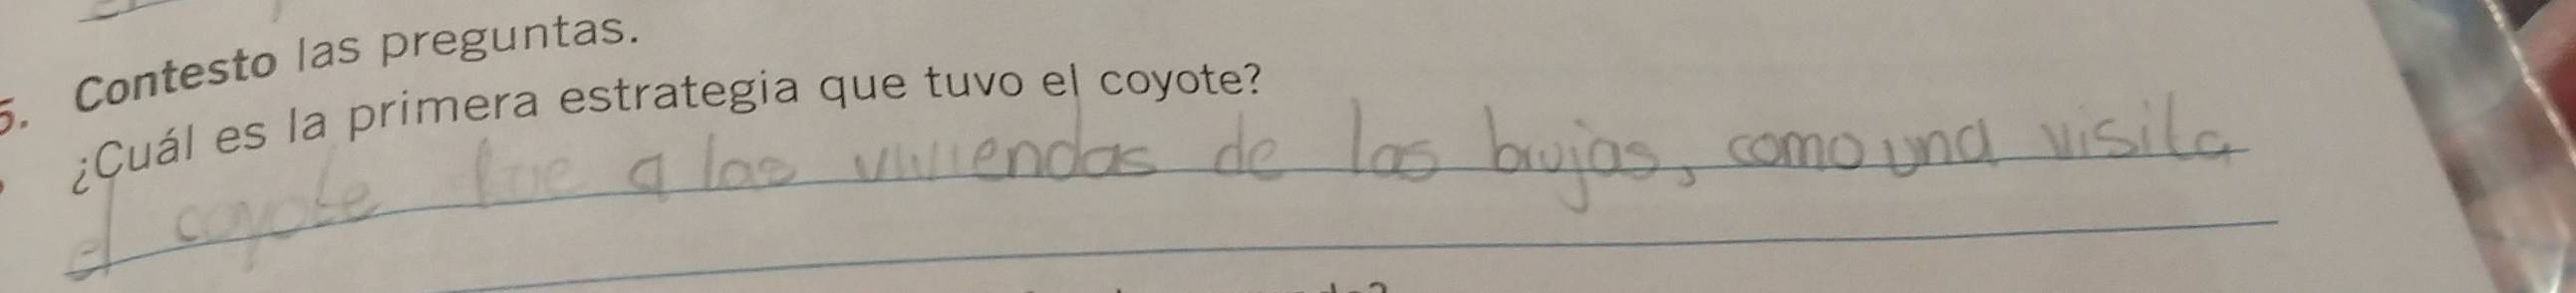 5. Contesto las preguntas.
¿Cuál es la primera estrategia que tuvo el coyote?
el coyote fue a las viviendas de las brujas, como una visita